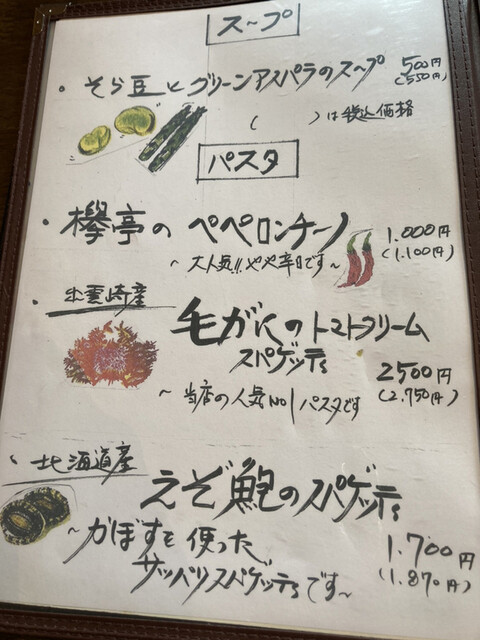 スープ
・そら豆とグリーンアスパラのスープ 500円
(550円)
( )は税込価格
パスタ
・欅亭のペペロンチーノ 1.000円
(1.100円)
~大人気!!やや辛目です~
・出雲崎産
毛がにのトマトクリーム
スパゲッティ 2500円
(2.750円)
~当店の人気No1パスタです
・北海道産
えぞ鮑のスパゲッティ
~かぼすを使った
サッパリスパゲッティです~
1.700円
(1.870円)